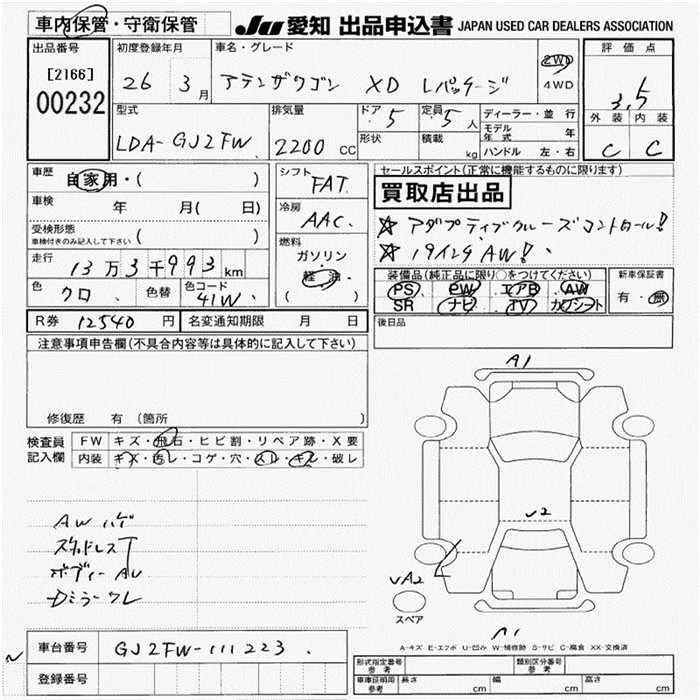 車内保管・守衛保管
JU 愛知 出品申込書 JAPAN USED CAR DEALERS ASSOCIATION
出品番号
[2166]
00232
初度登録年月
26 3月
車名・グレード
アテンザワゴン XD Lパッケージ
2WD
4WD
評価点
3.5
外装 内装
C C
型式
LDA-GJ2FW
排気量
2200 CC
ドア 5
形状
定員 5 人
積載 kg
ディーラー・並行
モデル年式 年
ハンドル 左・右
車歴
自家用・( )
車検 年 月( 日)
受検形態
車検付きのみ記入して下さい ( )
走行 13万3千993km
色 クロ 色替 色コード 41W
シフト
FAT
冷房
AAC
燃料
ガソリン
軽油
( )
セールスポイント(正常に機能するものに限ります)
買取店出品
☆ アダプティブクルーズコントロール!
☆ 19インチAW!
装備品(純正品に限り○をつけてください)
PS PW エアB AW
SR ナビ TV カワシート
新車保証書
有・無
R券 12540 円 名変通知期限 月 日
後日品
注意事項申告欄(不具合内容等は具体的に記入して下さい)
修復歴 有 (箇所 )
検査員記入欄
FW キズ・飛石・ヒビ割・リペア跡・X要
内装 キズ・汚レ・コゲ・穴・スレ・キレ・破レ
AWハゲ
スタッドレスT
ボディーAU
Dミラーワレ
A1
v2
vA2
スペア
A1
A-キズ E-エクボ U-凹み W-補修跡 S-サビ C-腐食 XX-交換済
車台番号 GJ2FW-111223
登録番号
形式指定番号
参考
類別区分番号
参考
車庫証明用
参考
長さ cm 幅 cm 高さ cm